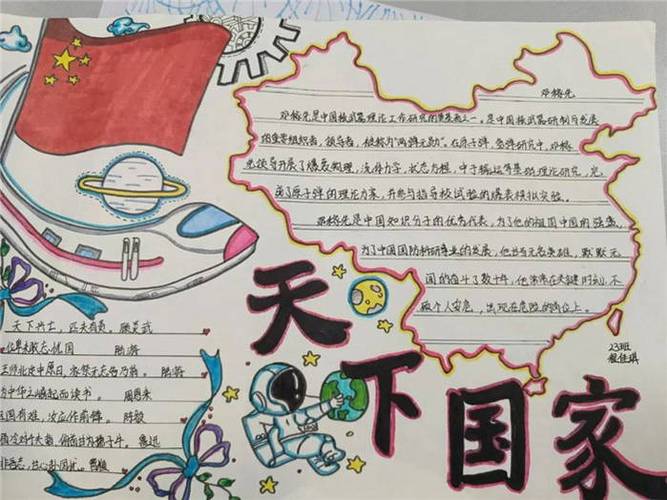 邓稼先
邓稼先是中国核武器理论工作研究的奠基者之一。是中国核武器研制与发展
的重要组织者，领导者，被称为"两弹元勋"。在原子弹，氢弹研究中，邓稼
先领导开展了爆轰物理，流体力学，状态方程，中子输运等基础理论研究，完
成了原子弹的理论方案，并参与指导核试验的爆轰模拟实验。
邓稼先是中国知识分子的优秀代表，为了他的祖国中国的强盛，
为了中国国防科研事业的发展，他甘当无名英雄，默默无
闻的奋斗了数十年，他常常在关键时刻，不
顾个人安危，出现在危险的岗位上。
23班
天下国家
天下兴亡，匹夫有责 顾炎武
位卑未敢忘忧国 陆游
王师北定中原日，家祭无忘告乃翁。陆游
为中华之崛起而读书。 周恩来
国有难，汝应作前锋。陈毅
横眉冷对千夫指，俯首甘为孺子牛。鲁迅